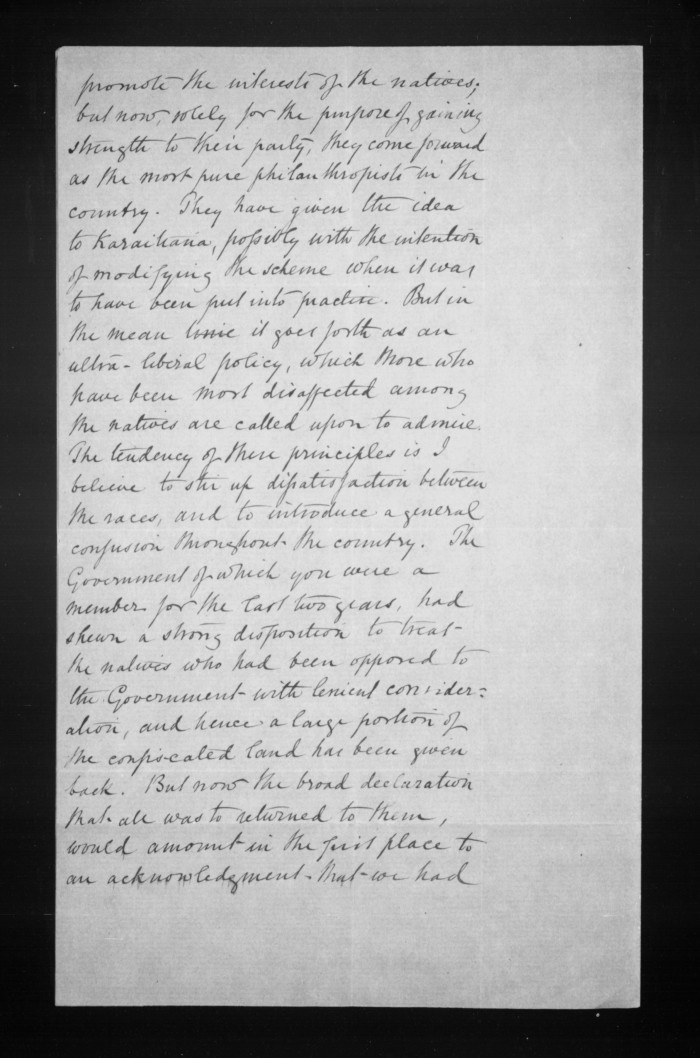 promote the interests of the natives;
but now, solely for the purpose of gaining
strength to their party, they come forward
as the most pure philanthropists in the
country. They have given the idea
to Karaitiana, possibly with the intention
of modifying the scheme when it was
to have been put into practice. But in
the mean time it goes forth as an
ultra-liberal policy, which those who
have been most disaffected among
the natives are called upon to admire.
The tendency of these principles is I
believe to stir up dissatisfaction between
the races, and to introduce a general
confusion throughout the country. The
Government of which you were a
member for the last two years, had
shewn a strong disposition to treat
the natives who had been opposed to
the Government with lenient consider=
ation, and hence a large portion of
the confiscated land has been given
back. But now the broad declaration
that all was to returned to them,
would amount in the first place to
an acknowledgment that we had